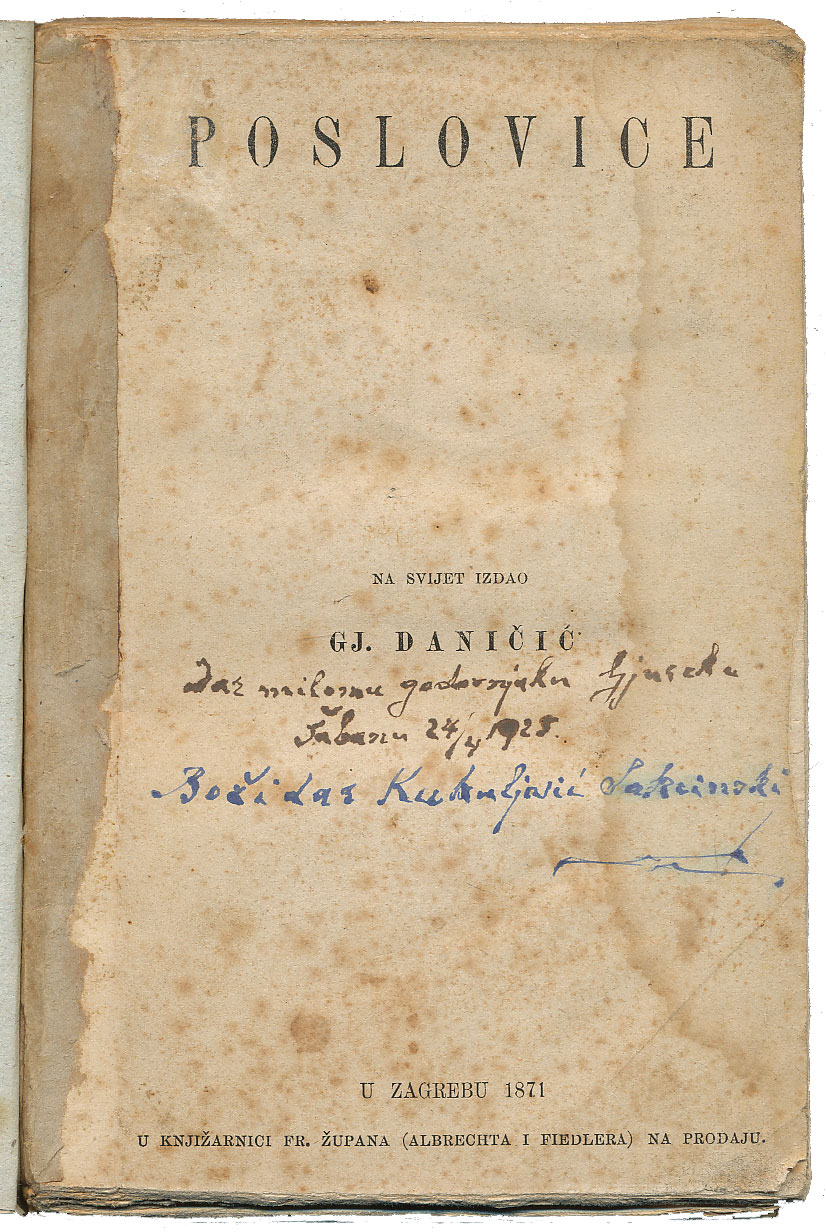 POSLOVICE
NA SVIJET IZDAO
GJ. DANIČIĆ
Dar milomu godovnjaku Gjureku
Šabanu 24/4 1928.
Božidar Kukuljević Sakcinski
U ZAGREBU 1871
U KNJIŽARNICI FR. ŽUPANA (ALBRECHTA I FIEDLERA) NA PRODAJU.